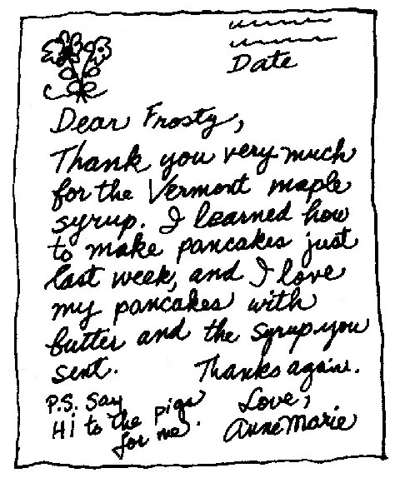 Date
Dear Frosty,
Thank you very much
for the Vermont maple
syrup. I learned how
to make pancakes just
last week, and I love
my pancakes with
butter and the syrup you
sent. Thanks again.
P.S. Say Hi to the pigs for me.
Love,
AnneMarie